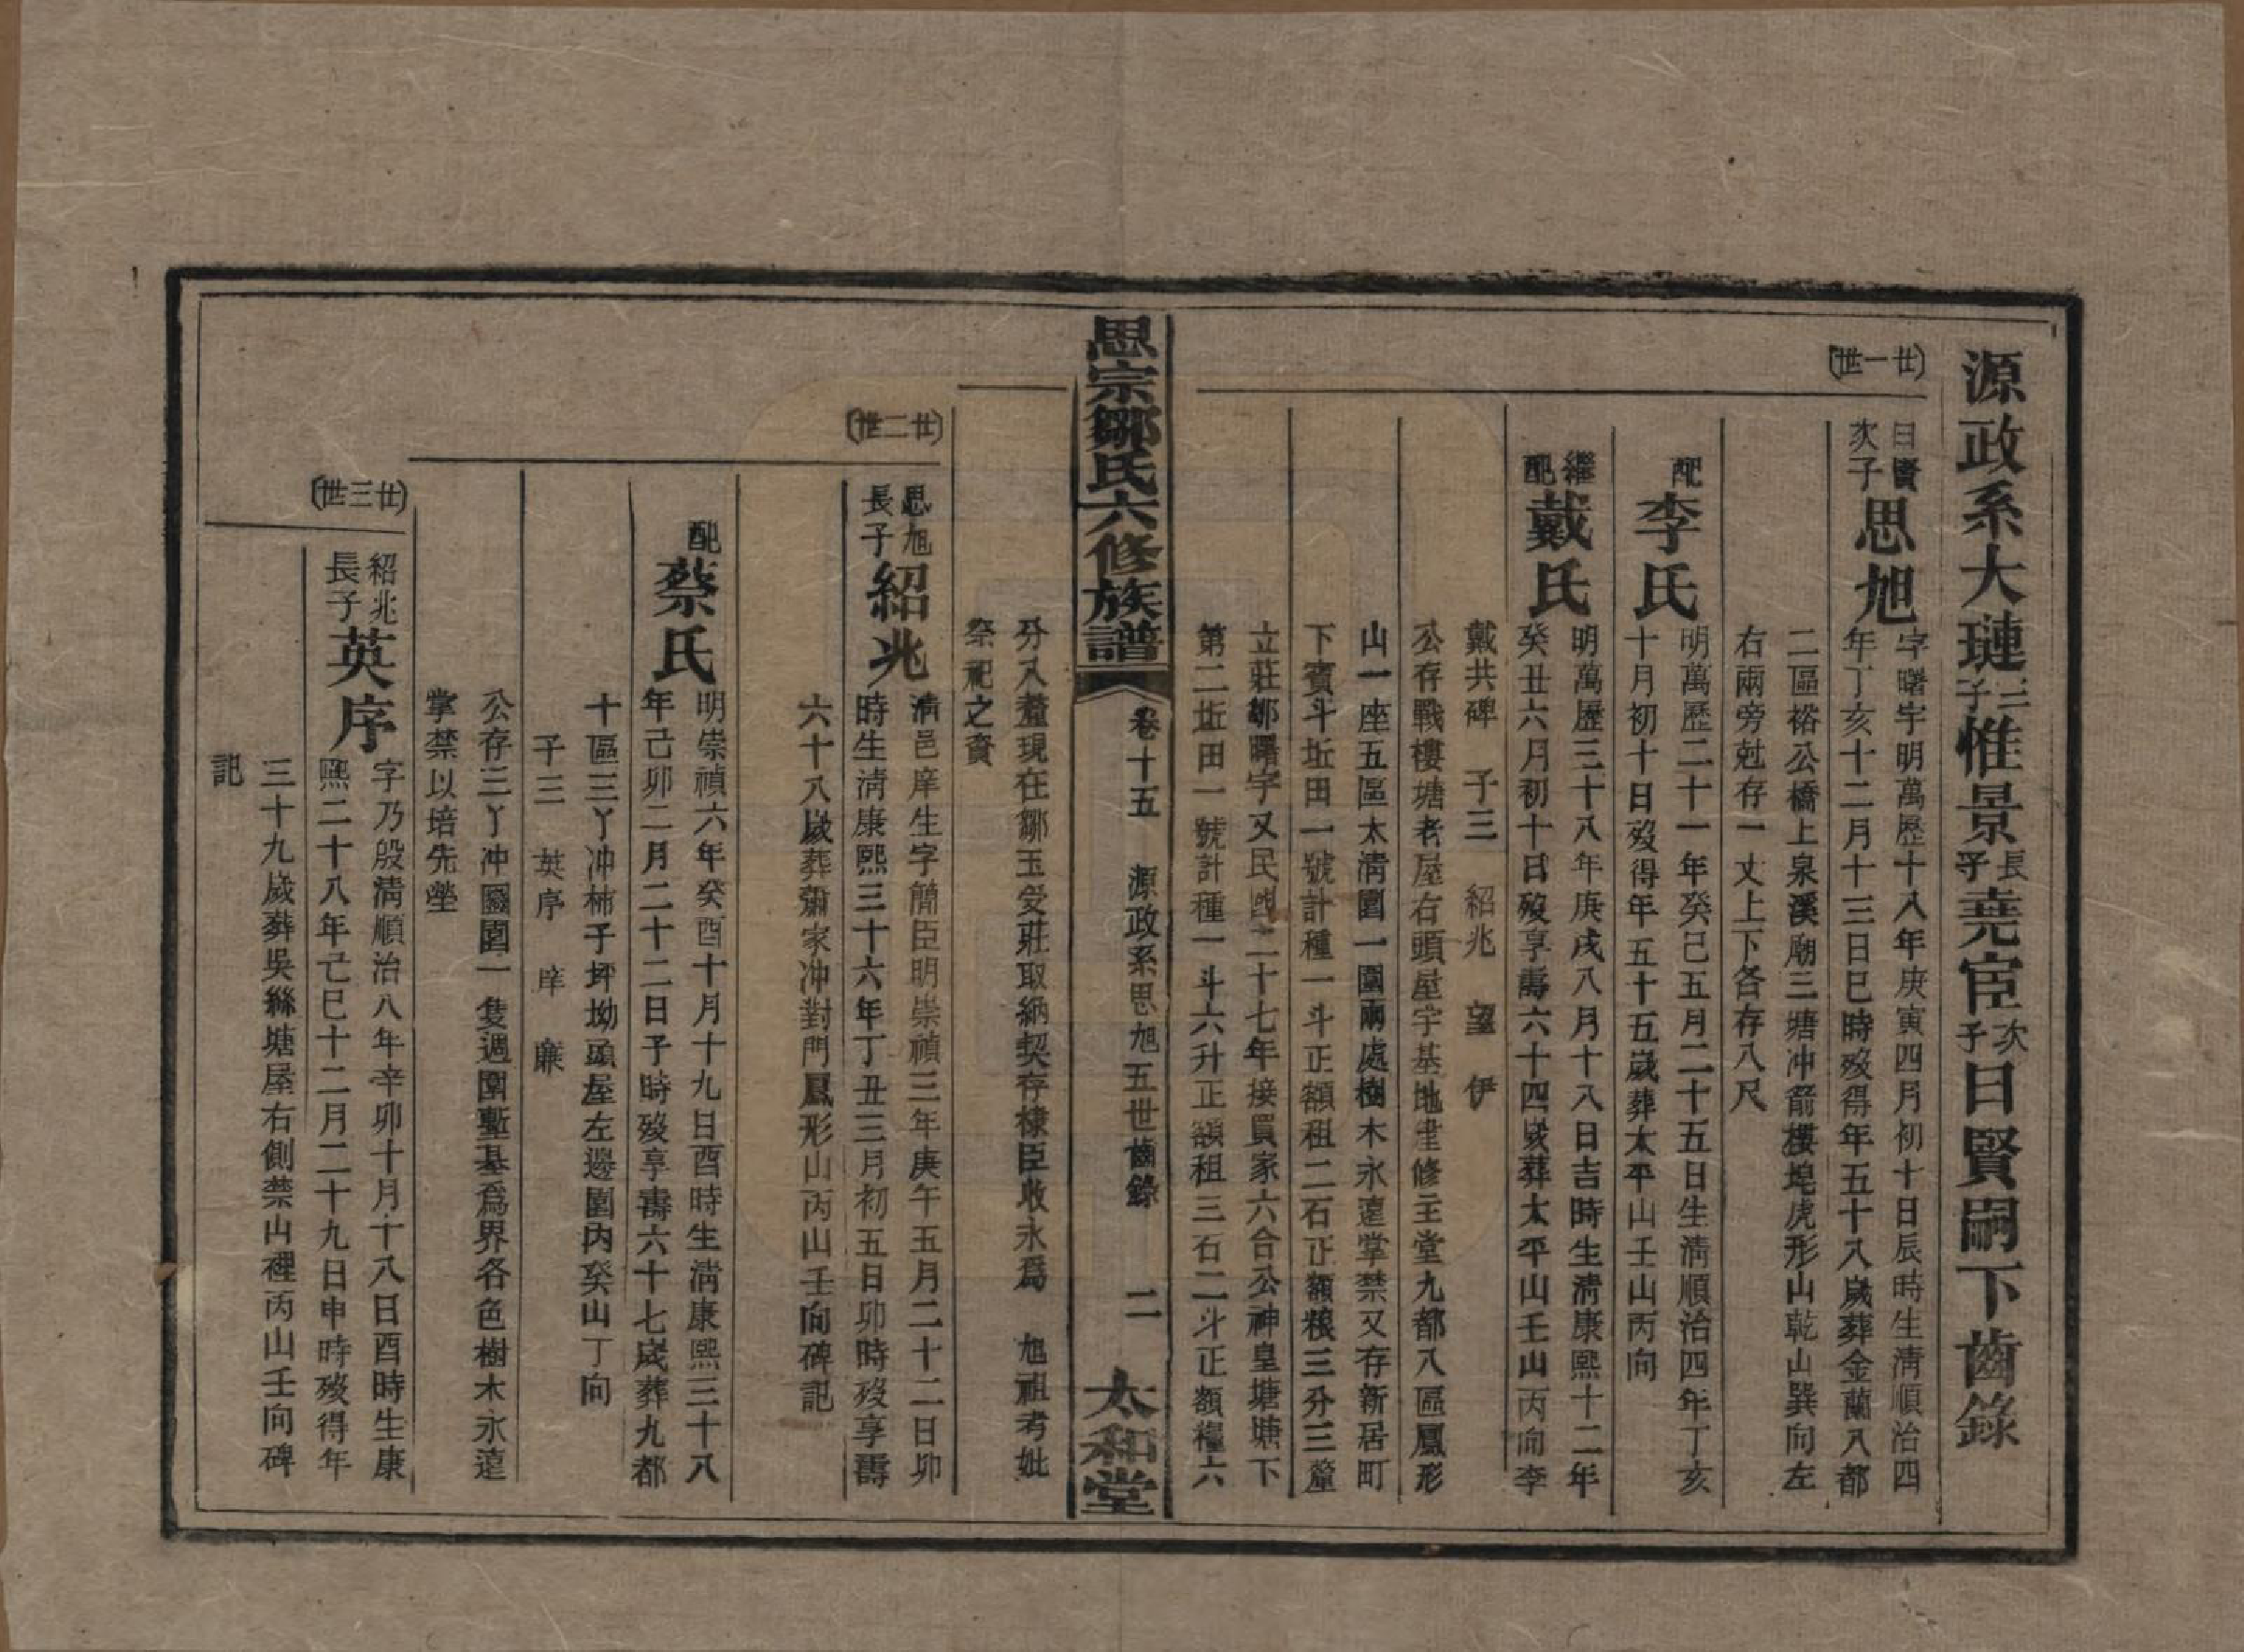 源政系大璉三子惟景長子堯宦次子日賢嗣下齒錄
廿一世
日賢次子
思旭
字曙宇明萬歷十八年庚寅四月初十日辰時生清順治四
年丁亥十二月十三日巳時歿得年五十八歲葬金蘭八都
二區裕公橋上泉溪廟三塘冲箭樓堍虎形山乾山巽向左
右兩旁尅存一丈上下各存八尺
配
李氏
明萬歷二十一年癸巳五月二十五日生清順治四年丁亥
十月初十日歿得年五十五歲葬太平山壬山丙向
繼配
戴氏
明萬歷三十八年庚戌八月十八日吉時生清康熙十二年
癸丑六月初十日歿享壽六十四歲葬太平山壬山丙向李
戴共碑 子三 紹兆 望 伊
公存戰樓塘老屋右頭屋宇基地建修主堂九都八區鳳形
山一座五區太清園一圍兩處樹木永遠掌禁又存新居町
下賓斗坵田一號計種一斗正額租二石正額粮三分三釐
立莊鄒曙宇又民國二十七年接買家六合公神皇塘塘下
第二坵田一號計種一斗六升正額租三石二斗正額糧六
思宗鄒氏六修族譜
卷十五 源政系思旭五世齒錄 二
太和堂
分八釐現在鄒玉受莊取納契存棣臣收永爲 旭祖考妣
祭祀之資
廿二世
思旭長子
紹兆
清邑庠生字簡臣明崇禎三年庚午五月二十二日卯
時生清康熙三十六年丁丑三月初五日卯時歿享壽
六十八歲葬蕭家冲對門鳳形山丙山壬向碑記
配
蔡氏
明崇禎六年癸酉十月十九日酉時生清康熙三十八
年己卯二月二十二日子時歿享壽六十七歲葬九都
十區三丫冲柿子坪坳頭屋左邊園內癸山丁向
子三 英序 庠 廉
公存三丫冲園一隻週圍塹基爲界各色樹木永遠
掌禁以培先塋
廿三世
紹兆長子
英序
字乃殷清順治八年辛卯十月十八日酉時生康
熙二十八年己巳十二月二十九日申時歿得年
三十九歲葬吳絲塘屋右側禁山裡丙山壬向碑
記